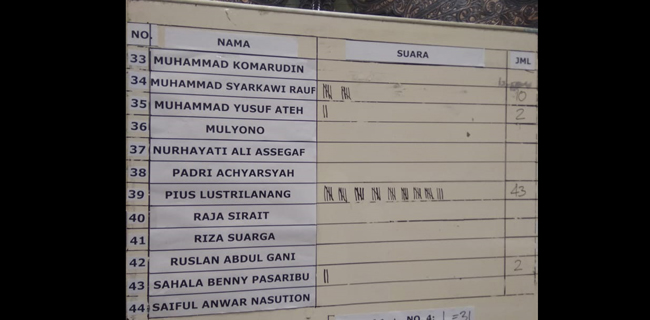 NO. NAMA SUARA JML
33 MUHAMMAD KOMARUDIN
34 MUHAMMAD SYARKAWI RAUF 10
35 MUHAMMAD YUSUF ATEH 2
36 MULYONO
37 NURHAYATI ALI ASSEGAF
38 PADRI ACHYARSYAH
39 PIUS LUSTRILANANG 43
40 RAJA SIRAIT
41 RIZA SUARGA
42 RUSLAN ABDUL GANI
43 SAHALA BENNY PASARIBU 2
44 SAIFUL ANWAR NASUTION
NO. 4: 1 = 31